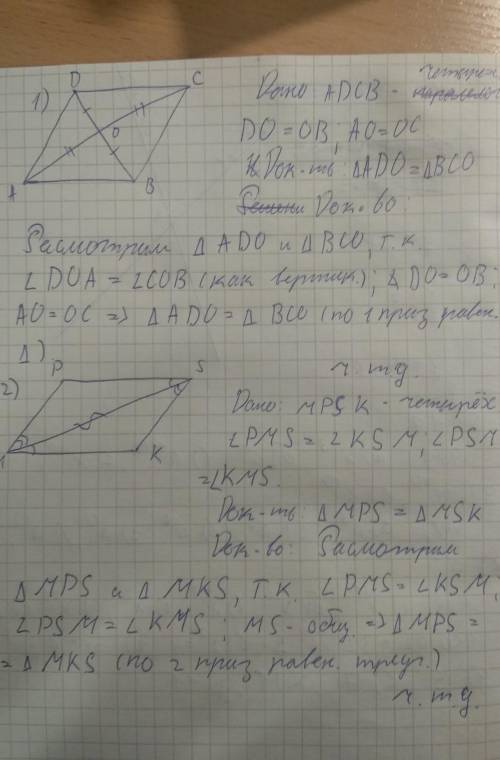 1)
D
C
O
A
B
Дано ADCB - четырёх
DO = OB; AO = OC
Док-ть: ΔADO = ΔBCO
Док-во:
Расмотрим Δ ADO и ΔBCO, т.к.
∠DOA = ∠COB (как вертик.); DO = OB;
AO = OC => Δ ADO = Δ BCO (по 1 приз. равен.
Δ)
ч.т.д.
2)
P
S
M
K
Дано: MPSK - четырёх
∠PMS = ∠KSM; ∠PSM
= ∠KMS.
Док-ть: ΔMPS = ΔMSK
Док-во: Расмотрим
ΔMPS и ΔMKS, т.к. ∠PMS = ∠KSM;
∠PSM = ∠KMS; MS - общ. => ΔMPS =
= ΔMKS (по 2 приз. равен. треуг.)
ч.т.д.